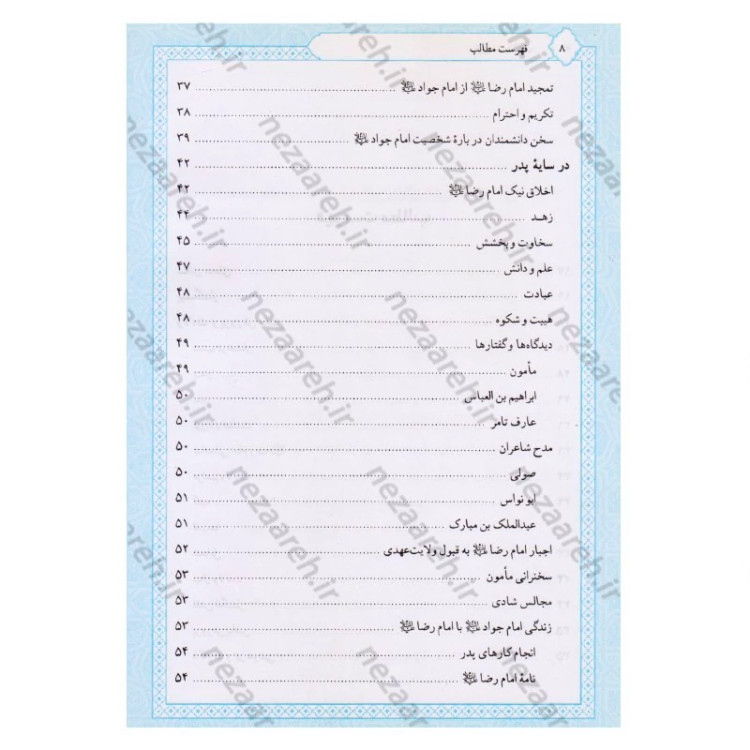 ۸ فهرست مطالب
تمجید امام رضا علیه السلام از امام جواد علیه السلام ۳۷
تکریم و احترام ۳۸
سخن دانشمندان دربارهٔ شخصیت امام جواد علیه السلام ۳۹
در سایهٔ پدر ۴۲
اخلاق نیک امام رضا علیه السلام ۴۲
زهـد ۴۴
سخاوت و بخشش ۴۵
علم و دانش ۴۷
عبادت ۴۸
هیبت و شکوه ۴۸
دیدگاه‌ها و گفتارها ۴۹
مأمون ۴۹
ابراهیم بن العباس ۵۰
عارف تامر ۵۰
مدح شاعران ۵۰
صولی ۵۰
ابو نواس ۵۱
عبدالملک بن مبارک ۵۱
اجبار امام رضا علیه السلام به قبول ولایت‌عهدی ۵۲
سخنرانی مأمون ۵۳
مجالس شادی ۵۳
زندگی امام جواد علیه السلام با امام رضا علیه السلام ۵۳
انجام کارهای پدر ۵۴
نامهٔ امام رضا علیه السلام ۵۴
nezaareh.ir